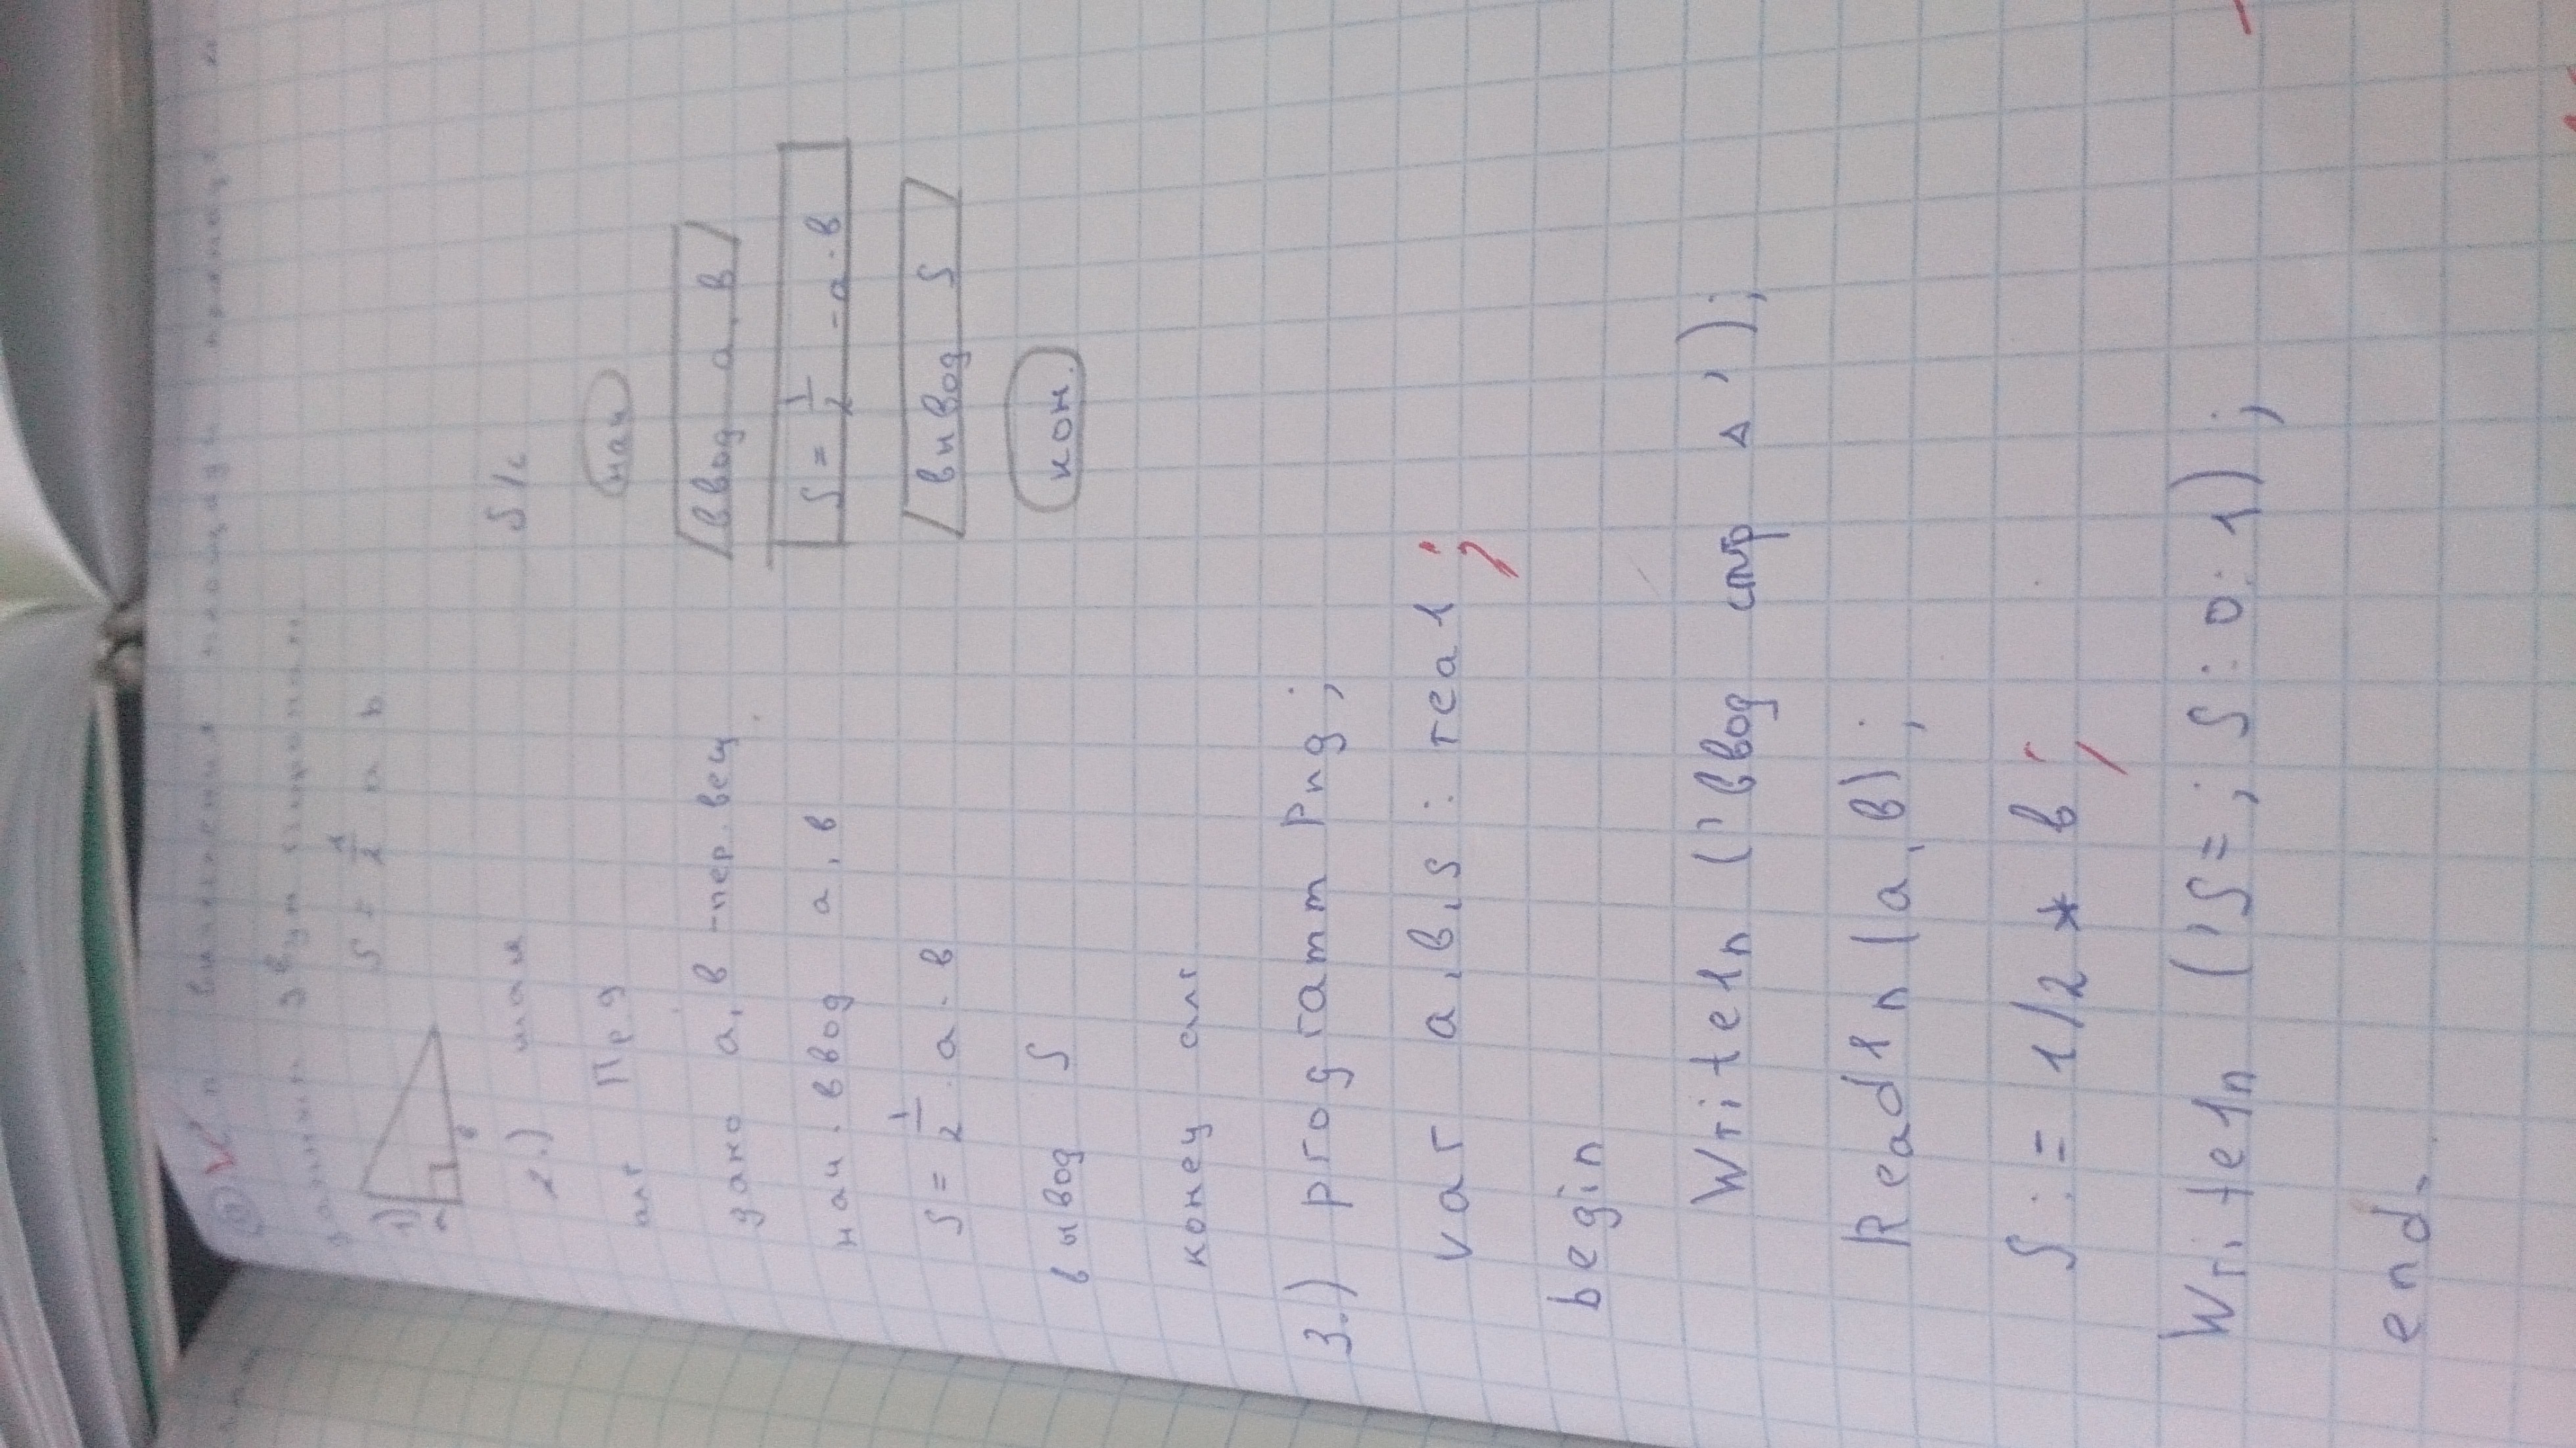 вычисления площади
двум сторонам.
1) a в S = 1/2 a b
2.) шаги
алг Прд
дано a, в - пер. вещ.
нач. ввод a, в
S = 1/2 · a · в
вывод S
конец алг
Б/с
нач
ввод a, в
S = 1/2 - a · в
вывод S
кон.
3.) programm Png;
var a, в, s : real;
begin
Writeln ('Ввод стр Δ');
Readln (a, в);
S := 1/2 * в;
Writeln ('S=; S:0:1);
end.